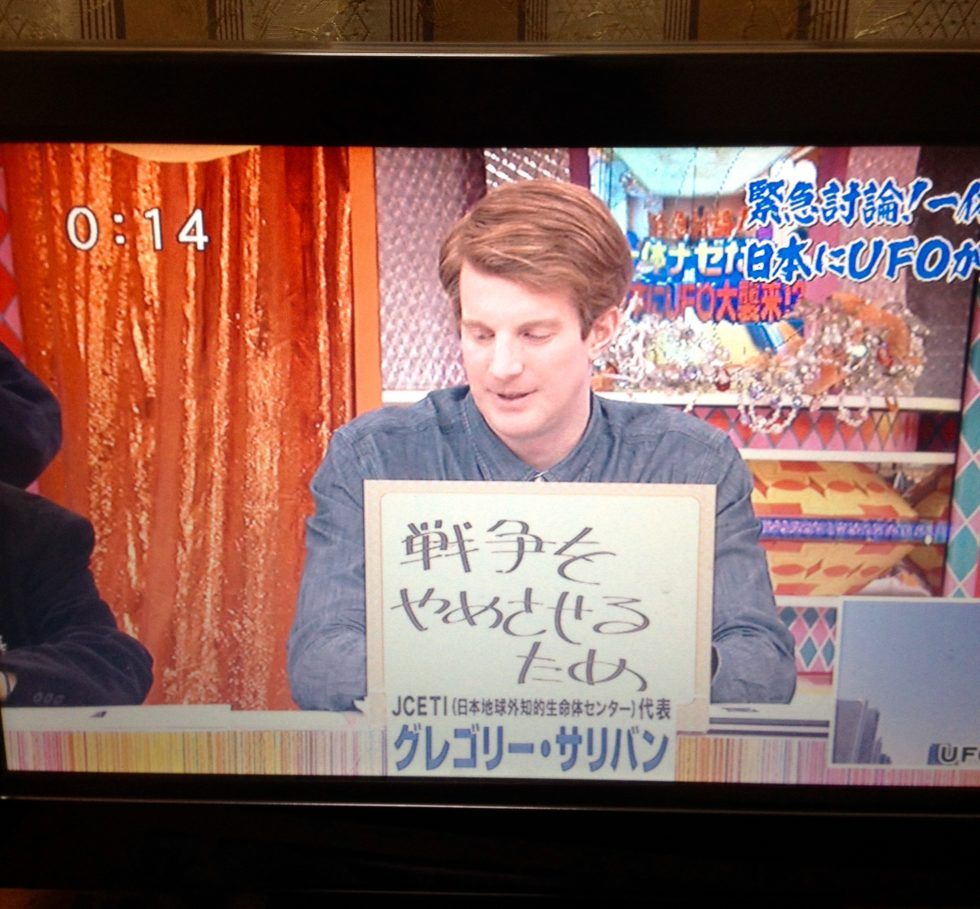 0:14
緊急討論!一体
日本にUFOが
体ナゼだ
にUFO大襲来!?
戦争を
やめさせる
ため
JCETI(日本地球外知的生命体センター)代表
グレゴリー・サリバン
UFO